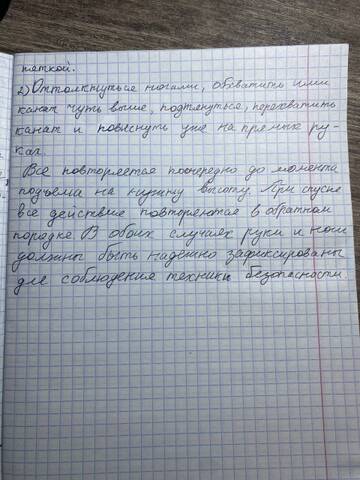 пяткой.
2) Оттолкнуться ногами, обхватить ими
канат чуть выше, подтянуться, перехватить
канат и повиснуть уже на прямых ру-
ках.
Все повторяется поочередно до момента
подъема на нужную высоту. При спуске
все действие повторяются в обратном
порядке В обоих случаях руки и ноги
должны быть надежно зафиксированы
для соблюдения техники безопасности.